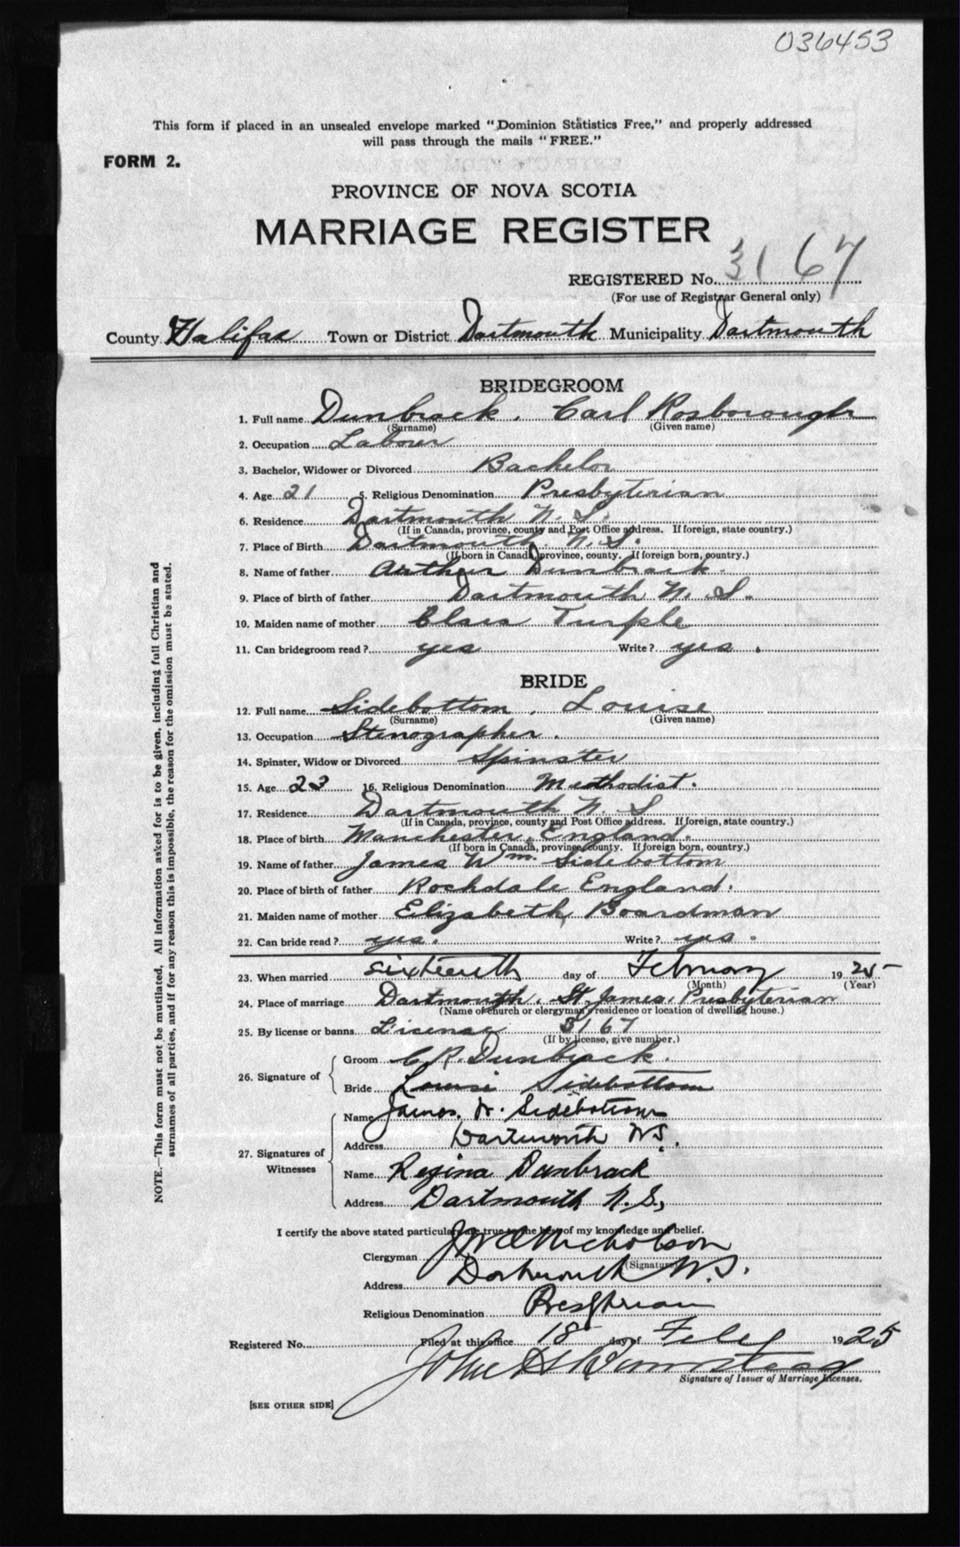 036453
This form if placed in an unsealed envelope marked "Dominion Statistics Free," and properly addressed
will pass through the mails "FREE."
FORM 2.
PROVINCE OF NOVA SCOTIA
MARRIAGE REGISTER
REGISTERED No. 3167
(For use of Registrar General only)
County Halifax Town or District Dartmouth Municipality Dartmouth
BRIDEGROOM
1. Full name Dunbrack, Carl Rosborough
(Surname) (Given name)
2. Occupation Labourer
3. Bachelor, Widower or Divorced Bachelor
4. Age 21 5. Religious Denomination Presbyterian
6. Residence Dartmouth N. S.
(If in Canada, province, county and Post Office address. If foreign, state country.)
7. Place of Birth Dartmouth. N. S.
(If born in Canada, province, county. If foreign born, country.)
8. Name of father Arthur Dunbrack.
9. Place of birth of father Dartmouth N. S.
10. Maiden name of mother Clara Turple
11. Can bridegroom read? yes Write? yes.
BRIDE
12. Full name Sidebottom, Louise
(Surname) (Given name)
13. Occupation Stenographer.
14. Spinster, Widow or Divorced Spinster
15. Age 23 16. Religious Denomination Methodist.
17. Residence Dartmouth N. S
(If in Canada, province, county and Post Office address. If foreign, state country.)
18. Place of birth Manchester, England.
(If born in Canada, province, county. If foreign born, country.)
19. Name of father James Wm. Sidebottom
20. Place of birth of father Rochdale England.
21. Maiden name of mother Elizabeth Boardman
22. Can bride read? yes. Write? yes.
23. When married sixteenth day of February 1925
(Month) (Year)
24. Place of marriage Dartmouth. St. James. Presbyterian
(Name of church or clergyman's residence or location of dwelling house.)
25. By license or banns License 3167
(If by license, give number.)
26. Signature of
Groom C. R. Dunbrack.
Bride Louise Sidebottom
27. Signatures of Witnesses
Name James. W. Sidebottom
Address Dartmouth NS.
Name Regina Dunbrack
Address Dartmouth N. S,
I certify the above stated particulars are true to the best of my knowledge and belief.
Clergyman Nicholson
(Signature)
Address Dartmouth N. S.
Religious Denomination Presbyterian
Registered No. Filed at this office 18 day of Feby 1925
John
Signature of Issuer of Marriage Licenses.
[SEE OTHER SIDE]
NOTE.—This form must not be mutilated. All information asked for is to be given, including full Christian and
surnames of all parties, and if for any reason this is impossible, the reason for the omission must be stated.